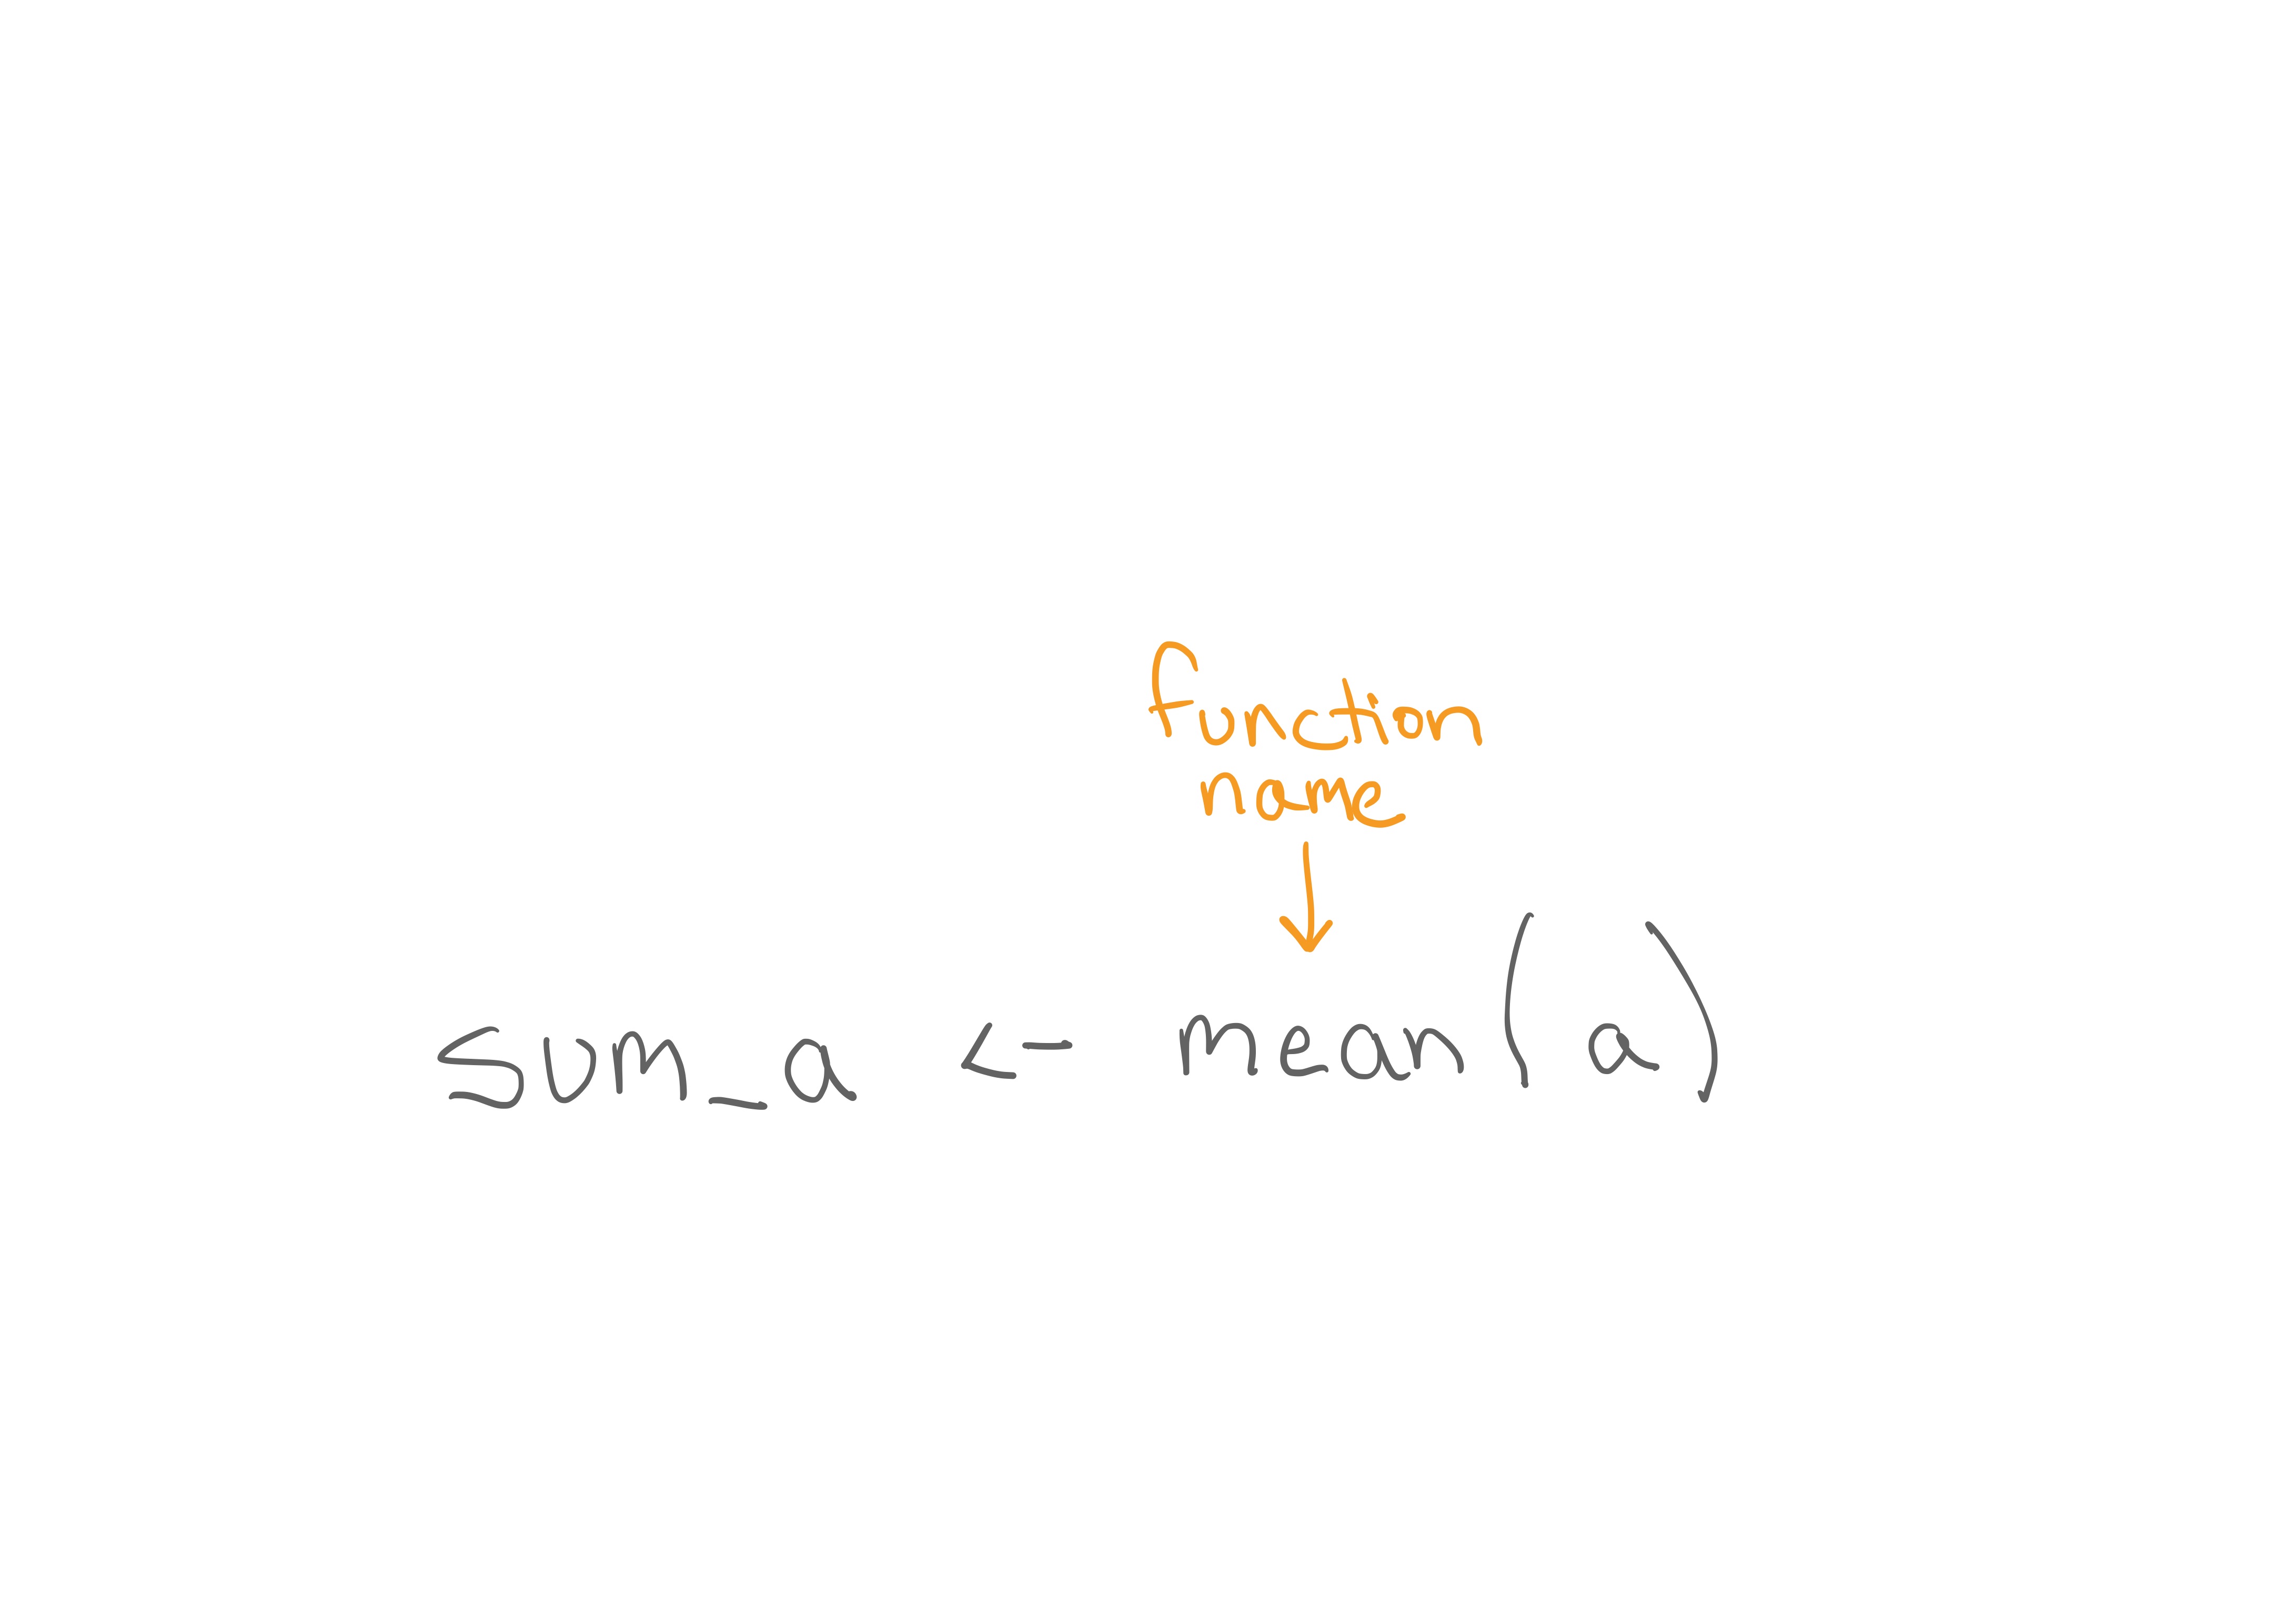 function
name
sum_a <- mean(a)